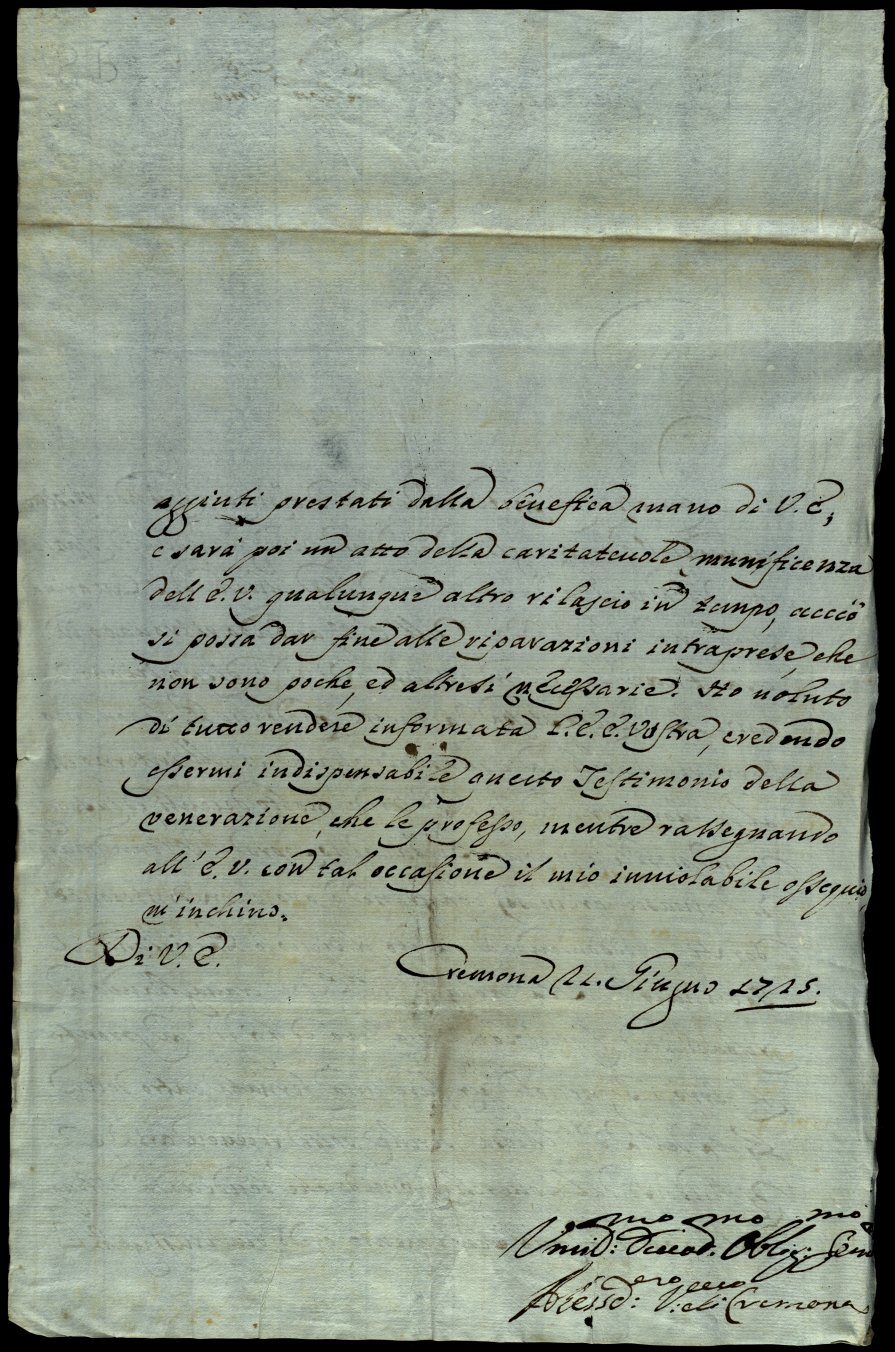 aggiuti prestati dalla benefica mano di V. E;
e sarà poi un atto della caritateuole munificenza
dell'E. V. qualunque altro rilascio in tempo, acciò
si possa dar fine alle riparazioni intraprese, che
non sono poche, ed altresi necessarie. Ho uoluto
di tutto rendere informata l'E. E. Vostra, credendo
essermi indispensabile questo Testimonio della
venerazione, che le professo, mentre rassegnando
all' E. V. con tal occasione il mio inuiolabile ossequio,
m'inchino.
Di V. E.
Cremona Giugno
Umil:mo Deuod:mo Oblig:mo Seru
Aless:dro Vesc:o di Cremona